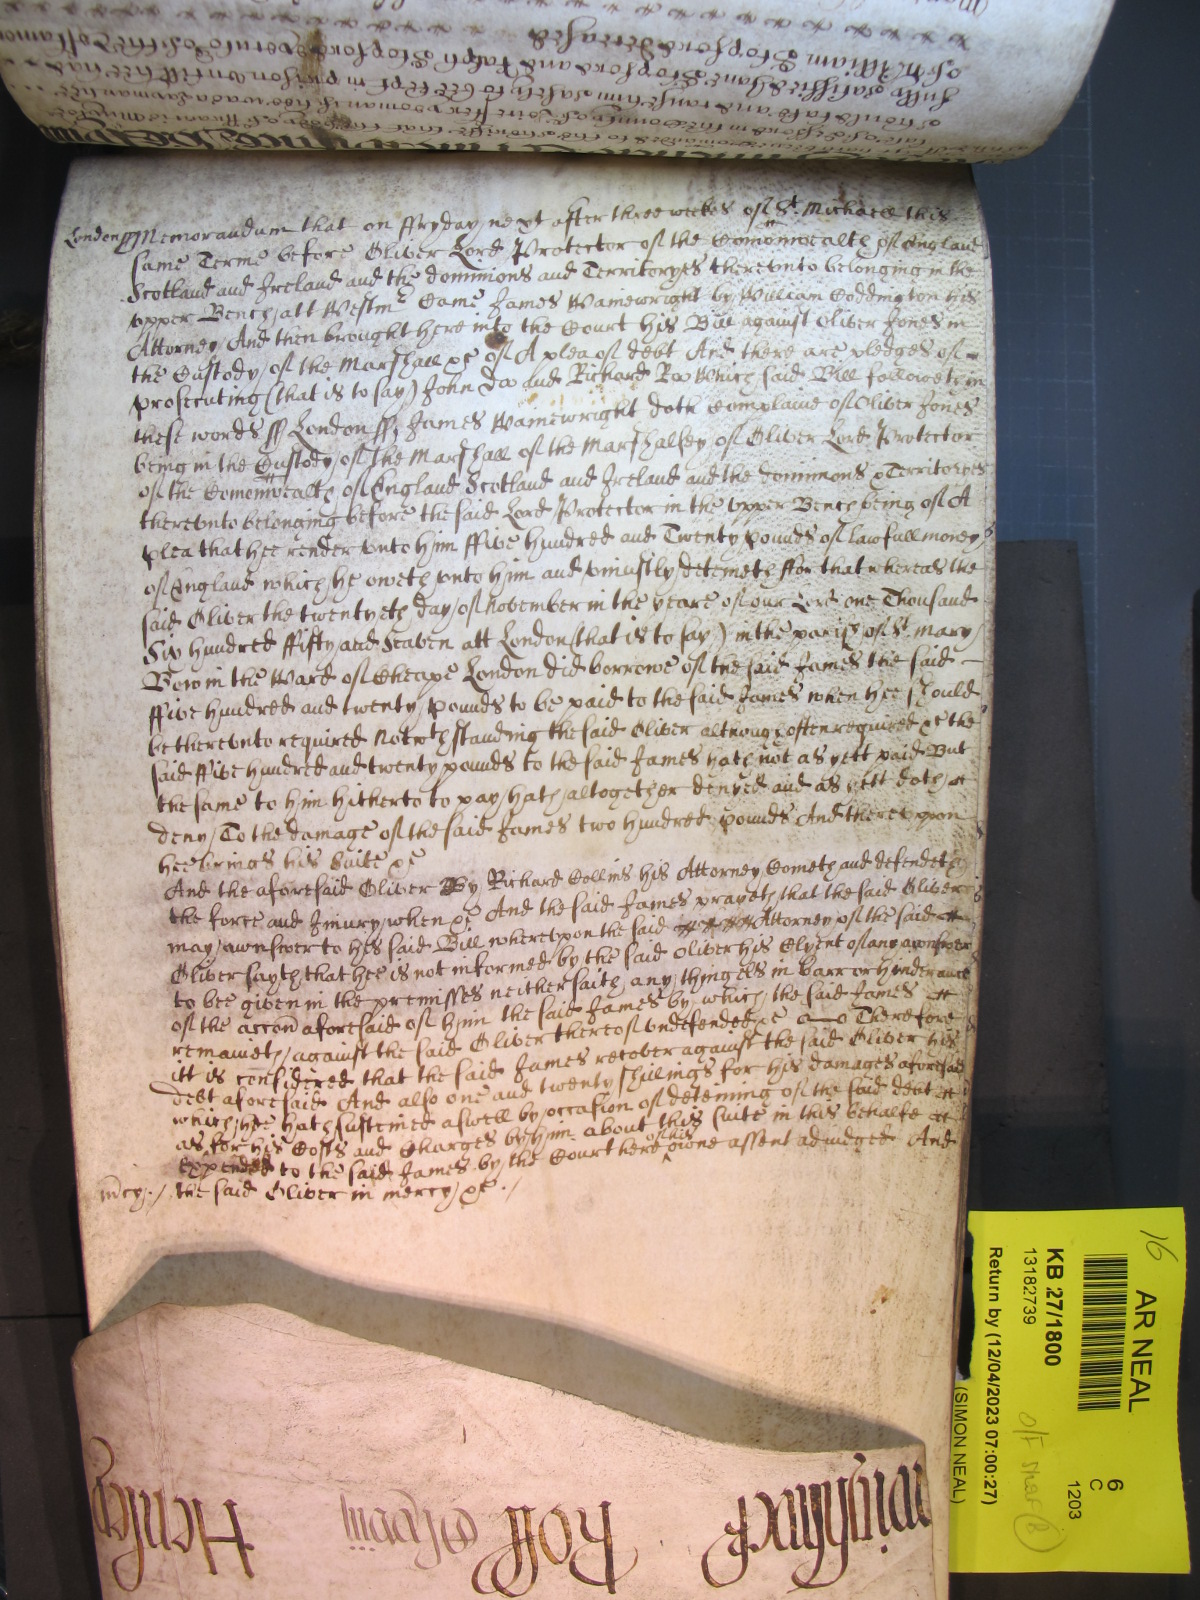 of William Stopford and Ralph Stopford deceased
London ss Memorandum that on ffryday next after three weekes of St. Michaell this
same Terme before Oliver Lord Protector of the Comonwealth of England
Scotland and Ireland and the dominions and Territoryes therevnto belonging in the
vpper Bench att Westmr Came James Wainewright by William Coddington his
Attorney And then brought here into the Court his Bill against Oliver Jones in
the Custody of the Marshall &c of A plea of debt And there are pledges of
prosecuting (that is to say) John Do and Richard Roo Which said Bill followeth in
these words ss London ss James Wainewright doth Complaine of Oliver Jones
being in the Custody of the Marshall of the Marshalsey of Oliver Lord Protector
of the Comonwealth of England Scotland and Ireland and the dominions & Territories
therevnto belonging before the said Lord Protector in the vpper Bench being of A
plea that hee render vnto him ffive hundred and Twenty pounds of lawfull money
of England which he oweth vnto him and vniustly deteineth ffor that whereas the
said Oliver the twentyeth day of November in the yeare of our Lord one Thousand
Six hundred ffifty and Seaven att London (that is to say) in the parish of St. Mary
Bow in the Ward of Cheape London did borrowe of the said James the said
ffive hundred and twenty pounds to be paid to the said James when hee should
be therevnto required Notwthstanding the said Oliver although often required &c the
said ffive hundred and twenty pounds to the said James hath not as yett paid But
the same to him hitherto to pay hath altogether denyed and as yett doth
deny To the damage of the said James two hundred pounds And therevpon
hee brings his Suite &c
And the aforesaid Oliver By Richard Collins his Attorney Cometh and defendeth
the force and Iniury when &c And the said James prayeth that the said Oliver
may awnswer to his said Bill wherevpon the said Attorney of the said
Oliver sayth that hee is not informed by the said Oliver his Clyent of any awnswer
to bee given in the premisses neither saith any thing els in barr or hinderance
of the accon aforesaid of him the said James by which the said James
remaineth against the said Oliver thereof vndefended &c Therefore
itt is considered that the said James recover against the said Oliver his
debt aforesaid And also one and twenty shillings for his damages aforesaid
which hee hath susteined aswell by occasion of deteining of the said debt
as for his Costs and Charges by him about this suite in this behalfe
expended to the said James by the Court here of his owne assent adiudged And
mcy./ the said Oliver in mercy &c ./
Henley
Roll
AR NEAL
16
6
C
1203
KB 27/1800
13182739
Return by (12/04/2023 07:00:27)
(SIMON NEAL)